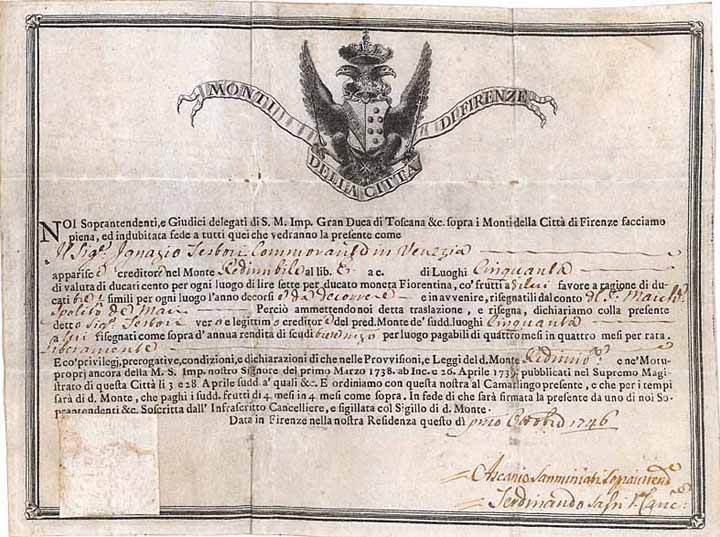 MONTI DELLA CITTÀ DI FIRENZE
NOI Soprantendenti, e Giudici delegati di S. M. Imp. Gran Duca di Toscana &c. sopra i Monti della Città di Firenze facciamo
piena, ed indubitata fede a tutti quei che vedranno la presente come
Il Sigr. Ignazio Commorante in Venezia
apparisce creditore nel Monte Redimibile al lib. a c. di Luoghi Cinquanta
di valuta di ducati cento per ogni luogo di lire sette per ducato moneta Fiorentina, co' frutti a favore a ragione di du-
cati tre simili per ogni luogo l'anno decorsi e da decorrere e in avvenire, risegnatili dal conto
Ipolito de Mari Perciò ammettendo noi detta traslazione, e risegna, dichiariamo colla presente
detto Sigr. vero e legittimo creditore del pred. Monte de' sudd. luoghi Cinquanta
a lui risegnati come sopra d'annua rendita di scudi per luogo pagabili di quattro mesi in quattro mesi per rata.
liberamente
E co' privilegi, prerogative, condizioni, e dichiarazioni di che nelle Provvisioni, e Leggi del d. Monte e ne' Motu-
propri ancora della M. S. Imp. nostro Signore del primo Marzo 1738. ab Inc. e 26. Aprile 1739. pubblicati nel Supremo Magi-
strato di questa Città li 3 e 28. Aprile sudd. a' quali &c. E ordiniamo con questa nostra al Camarlingo presente, e che per i tempi
sarà di d. Monte, che paghi i sudd. frutti di 4. mesi in 4 mesi come sopra. In fede di che sarà firmata la presente da uno di noi So-
prantendenti &c. Soscritta dall' Infrascritto Cancelliere, e sigillata col Sigillo di d. Monte.
Data in Firenze nella nostra Residenza questo di pmo 1746
Ascanio Sanminiati
Ferdinando